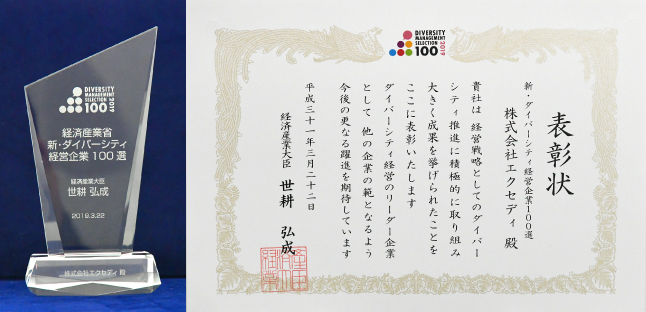 DIVERSITY
MANAGEMENT
SELECTION
100
2019
経済産業省
新・ダイバーシティ
経営企業100選
経済産業大臣
世耕 弘成
2019.3.22
株式会社エクセディ 殿
DIVERSITY
MANAGEMENT
SELECTION
100
2019
表彰状
新・ダイバーシティ経営企業100選
株式会社エクセディ 殿
貴社は 経営戦略としてのダイバー
シティ推進に積極的に取り組み
大きく成果を挙げられたことを
ここに表彰いたします
ダイバーシティ経営のリーダー企業
として 他の企業の範となるよう
今後の更なる躍進を期待しています
平成三十一年三月二十二日
経済産業大臣 世耕 弘成